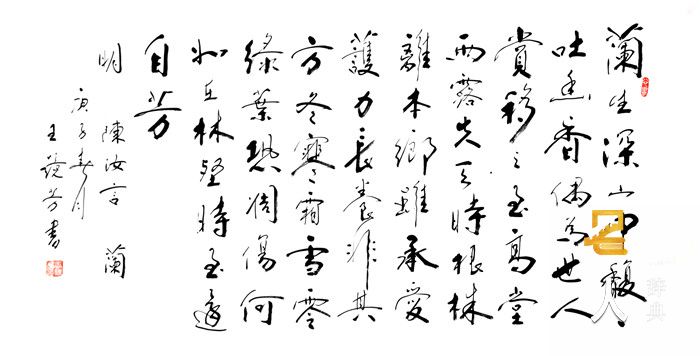 蘭生深山中馥馥
吐幽香偶為世人
賞移之至高堂
雨露失天時根株
離本鄉雖承愛
護力長養非其
方冬寒霜雪零
綠葉恐凋傷何
如在林壑時至還
自芳
明 陳汝言 蘭
庚子春月
王 芳書
辭典